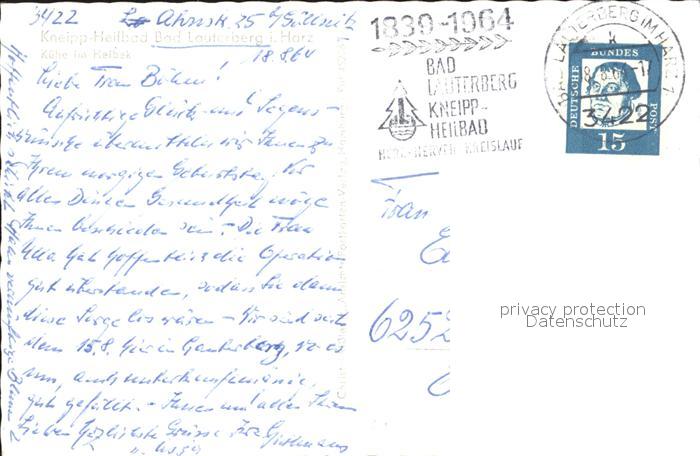 3422
Ahnstr. 25
Kneipp-Heilbad Bad Lauterberg i. Harz
18.8.64
Liebe Frau Böhm!
Aufrichtige Glück- und Segens-
wünsche übermitteln wir Ihnen zu
Ihrem morgigen Geburtstag. Vor
allen Dingen Gesundheit möge
Ihnen beschieden sein. Die Frau
Ulla hat hoffentlich die Operation
gut überstanden, sodass Sie dann
diese Sorge los wären - Wir sind seit
dem 15.8. hier in Lauterberg, wo es
uns, auch unterkunftsmässig,
gut gefällt. - Ihnen und allen Ihren
Lieben herzlichste Grüsse Ihre
1839-1964
BAD
LAUTERBERG
KNEIPP-
HEILBAD
HERZ-NERVEN-KREISLAUF
LAUTERBERG IM HARZ 1
3422
DEUTSCHE BUNDES POST
15
Frau
6252
privacy protection
Datenschutz